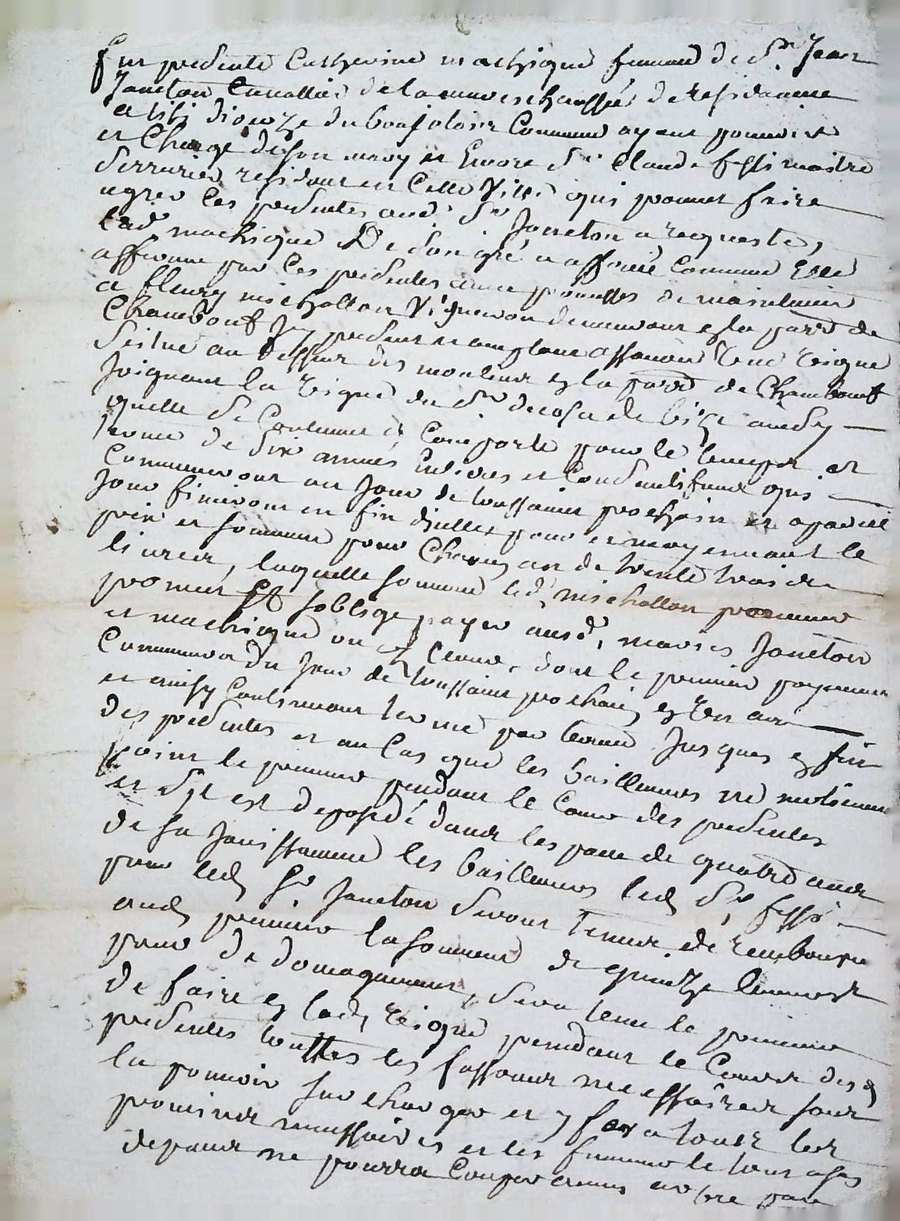 fut presente Catherine machique femme de Sr. Jean
Joncton Cavallier de la marechaussée de residance
a dioceze du baujolais Comme ayant pouvoir
et Charge de son mary et Encore Sr Claude fessi maitre
Serrurier residant en Cette Ville qui promet faire
agreer les presentes aud. Sr Joncton a requeste,
lad. machique De son gré a affermé Comme Elle
afferme par les presentes avec promesses de maintenir
a fleury michallon Vigneron demeurant en la parr. de
Chambout Icy present et acceptant assavoir Une Vigne
Scitué au dessus des moulins en la parr. de Chambout
Joignant la Vigne du Sr de bize ainsy
quelle se Contient et Comporte pour le temps et
terme de Six années Entieres et Consecutifves qui
Commenceront au Jour de toussaint prochain et a pareil
Jour finiront en fin dicelles pour et moyennant le
prix et somme pour Chacun an de trente trois
livres, laquelle somme led. michallon preneur
promet et soblige payer ausd. mariés Joncton
et machique dont le premier payement
Commencera du Jour de toussaint prochain en Un an
et ainsy Continuant terme par terme Jusques en fin
des presentes et au Cas que les bailleurs ne
point le preneur pendant le Cours des presentes
et Sil est deposedé dans les quatre ans
de sa Jouissance les bailleurs led. Sr fessi
pour led. Sr Joncton Seront Tenus de rembourser
aud. preneur la somme de quinze livres
pour dedomagement, Sera tenu le preneur
de faire en lad. Vigne pendant le Cours des
presentes touttes les fassons necessaires sans
la pouvoir surcharger et y fera tous les
provins necessaires et les
depance ne pourra Couper aucun arbre par